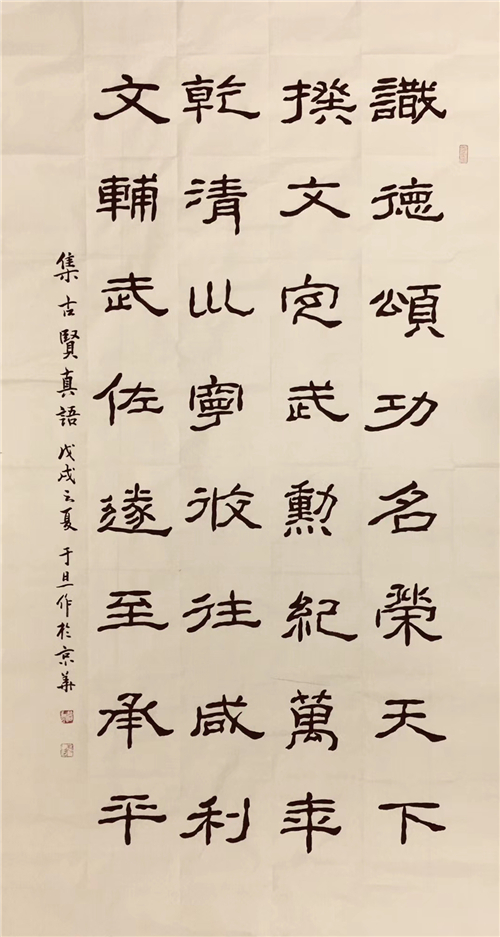 識德頌功名榮天下
撰文定武勳紀萬年
乾清巛寧攸往咸利
文輔武佐遂至承平
集古賢真語 戊戌之夏 于旦作於京華